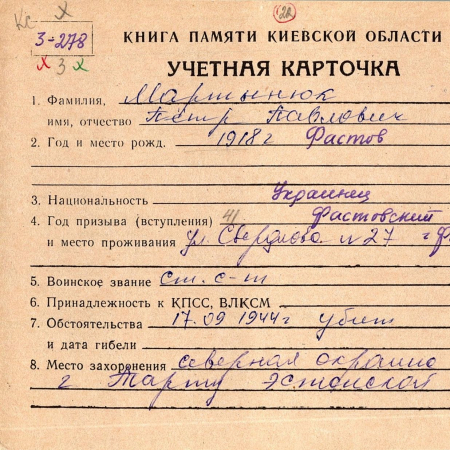 22
Кс X
3-278
x 3 x
КНИГА ПАМЯТИ КИЕВСКОЙ ОБЛАСТИ
УЧЕТНАЯ КАРТОЧКА
1. Фамилия, Мартынюк
имя, отчество Пётр Павлович
2. Год и место рожд. 1918г Фастов
3. Национальность Украинец
4. Год призыва (вступления) 41 Фастовский
и место проживания ул. Свердлова N27 г Ф
5. Воинское звание ст. с-т
6. Принадлежность к КПСС, ВЛКСМ
7. Обстоятельства 17.09 1944г убит
и дата гибели
8. Место захоронения северная окраина
г Тарту Эстонской